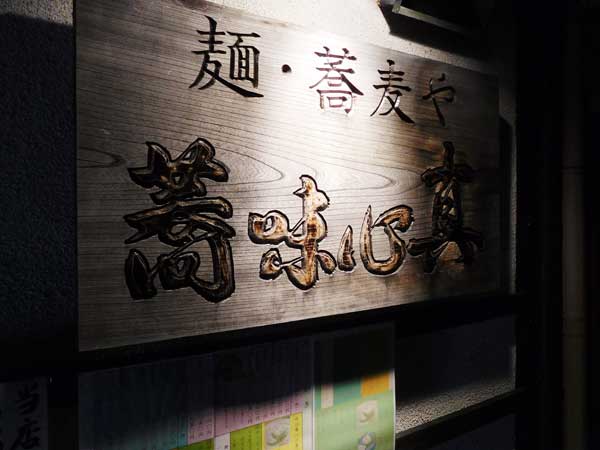 麺・蕎麦や
蕎味心真
当店